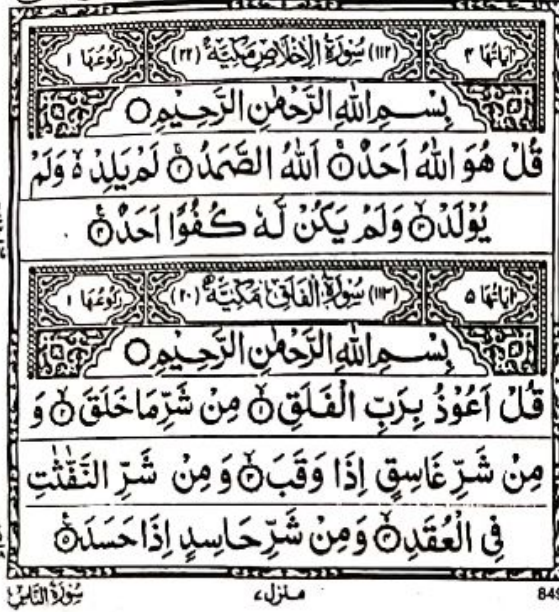 اٰيَاتُهَا ۴ (۱۱۲) سُوْرَةُ الْاِخْلَاصِ مَكِّيَّةٌ (۲۲) رُكُوْعُهَا ۱
بِسْمِ اللّٰهِ الرَّحْمٰنِ الرَّحِيْمِ ○
قُلْ هُوَ اللّٰهُ اَحَدٌ ۚ۝۱ اَللّٰهُ الصَّمَدُ ۚ۝۲ لَمْ يَلِدْ ۙ۬ وَلَمْ
يُوْلَدْ ۙ۝۳ وَلَمْ يَكُنْ لَّهٗ كُفُوًا اَحَدٌ ۠۝۴
اٰيَاتُهَا ۵ (۱۱۳) سُوْرَةُ الْفَلَقِ مَكِّيَّةٌ (۲۰) رُكُوْعُهَا ۱
بِسْمِ اللّٰهِ الرَّحْمٰنِ الرَّحِيْمِ ○
قُلْ اَعُوْذُ بِرَبِّ الْفَلَقِ ۙ۝۱ مِنْ شَرِّ مَا خَلَقَ ۙ۝۲ وَ
مِنْ شَرِّ غَاسِقٍ اِذَا وَقَبَ ۙ۝۳ وَمِنْ شَرِّ النَّفّٰثٰتِ
فِى الْعُقَدِ ۙ۝۴ وَمِنْ شَرِّ حَاسِدٍ اِذَا حَسَدَ ۠۝۵
سُوْرَةُ النَّاسِ منزل ۷